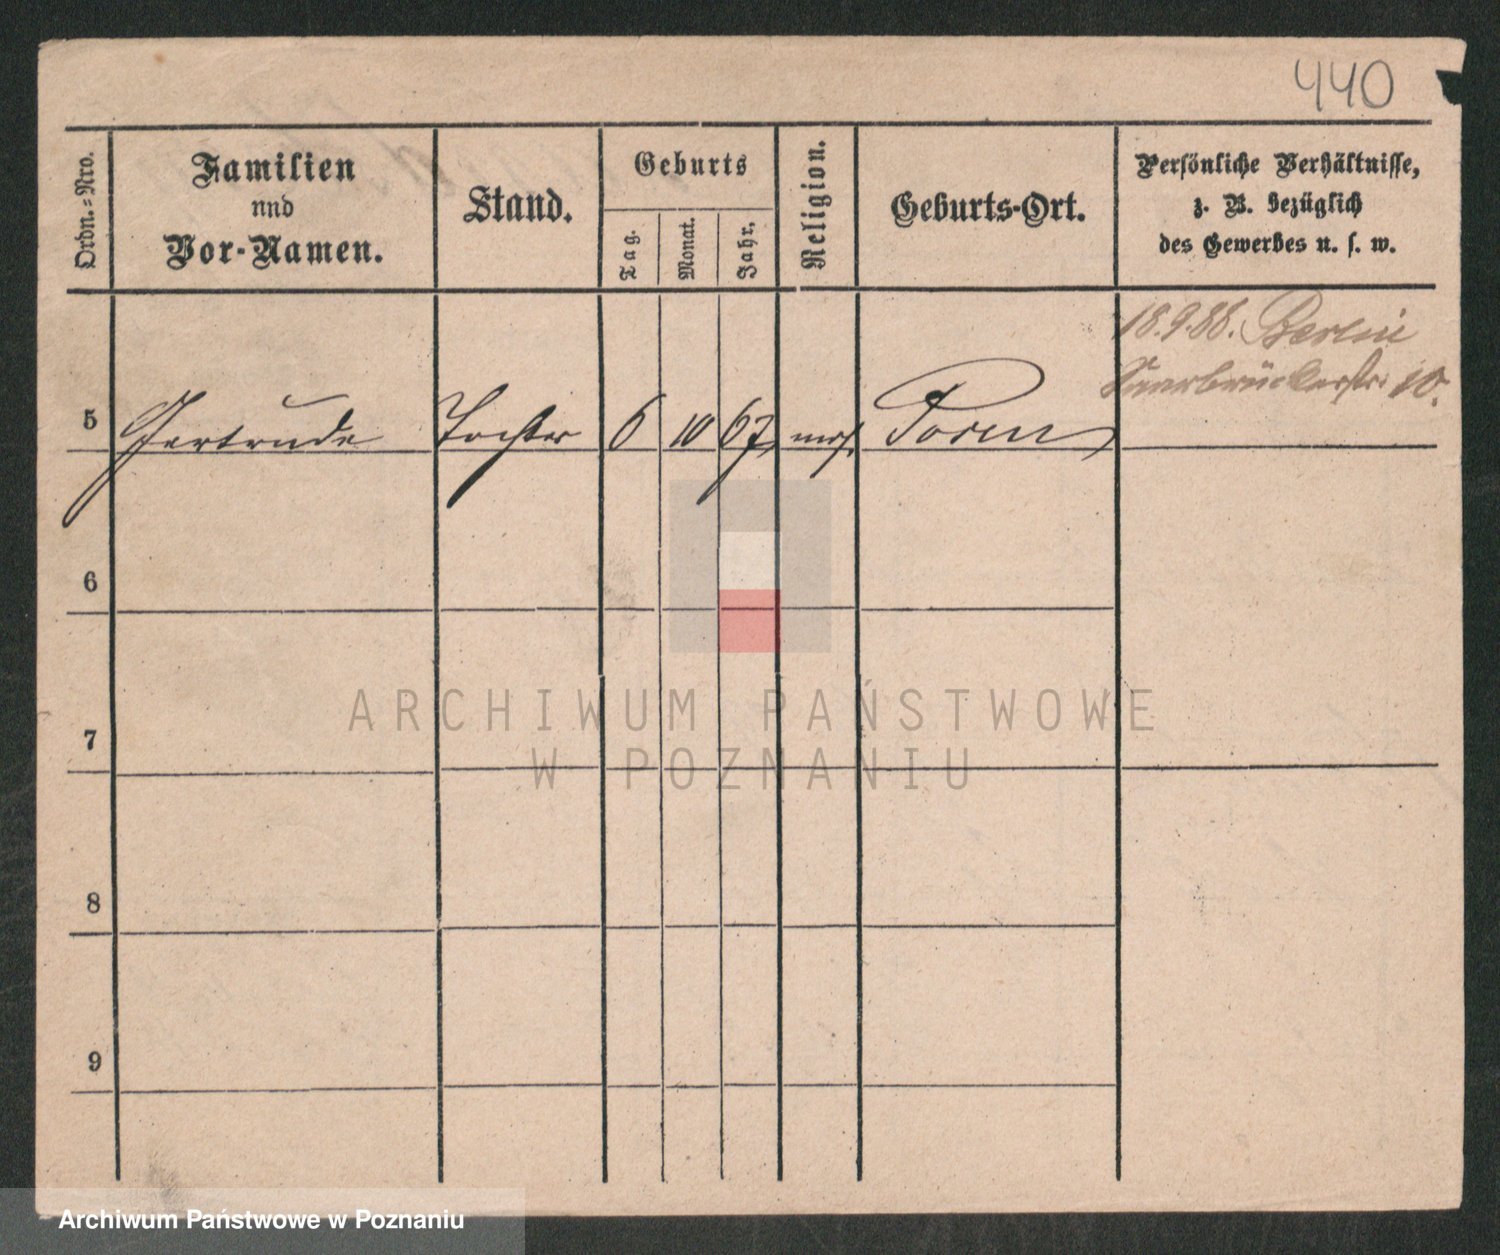 440
Ordn.-Nro.
Familien
und
Vor-Namen.
Stand.
Geburts
Tag.
Monat.
Jahr.
Religion.
Geburts-Ort.
Persönliche Verhältnisse,
z. B. bezüglich
des Gewerbes u. s. w.
18.9.88. Berlin
Saarbrückerstr. 10.
5 Gertrude Tochter 6 10 67 mos. Posen
6
7
8
9
ARCHIWUM PAŃSTWOWE
W POZNANIU
Archiwum Państwowe w Poznaniu